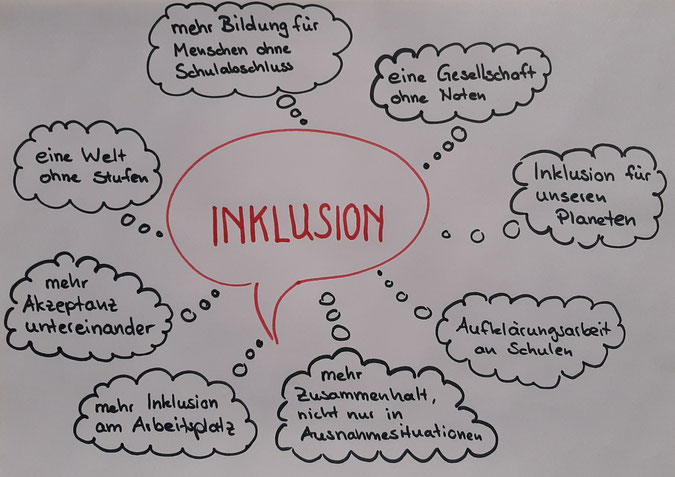 mehr Bildung für
Menschen ohne
Schulabschluss
eine Gesellschaft
ohne Noten
eine Welt
ohne Stufen
Inklusion für
unseren
Planeten
INKLUSION
mehr
Akzeptanz
untereinander
Aufklärungsarbeit
an Schulen
mehr Inklusion
am Arbeitsplatz
mehr
Zusammenhalt,
nicht nur in
Ausnahmesituationen